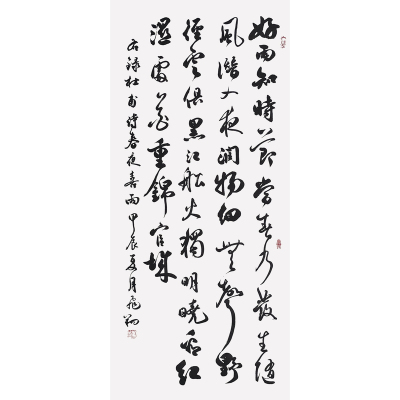 好雨知時節當春乃發生隨
風潛入夜潤物細無聲野
徑雲俱黑江船火獨明曉看紅
濕處花重錦官城
右録杜甫詩春夜喜雨甲辰夏月飛翔